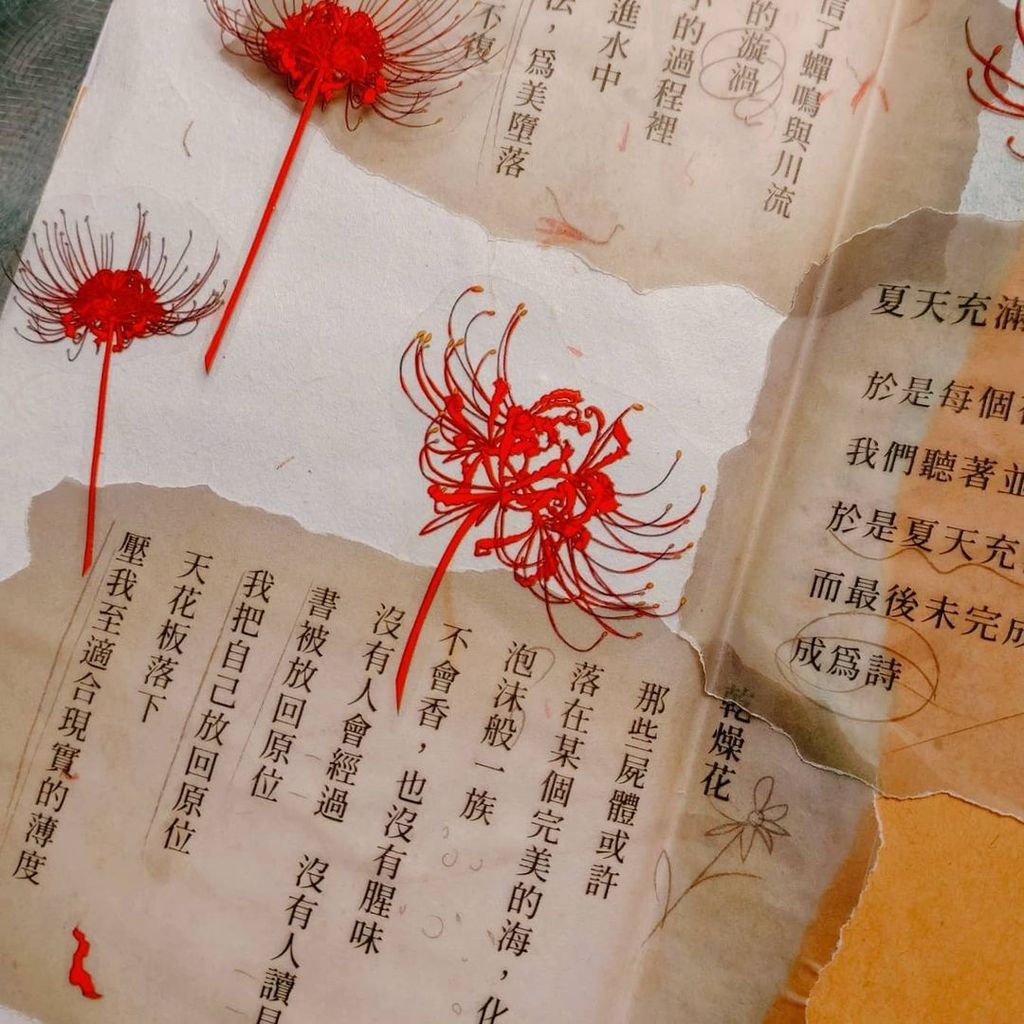 信了蟬鳴與川流
的漩渦
小的過程裡
進水中
法，爲美墮落
不復
夏天充滿
於是每個
我們聽著並
於是夏天充
而最後未完成
成爲詩
乾燥花
那些屍體或許
落在某個完美的海，化
泡沫般一族
不會香，也沒有腥味
沒有人會經過
沒有人讀
書被放回原位
我把自己放回原位
天花板落下
壓我至適合現實的薄度